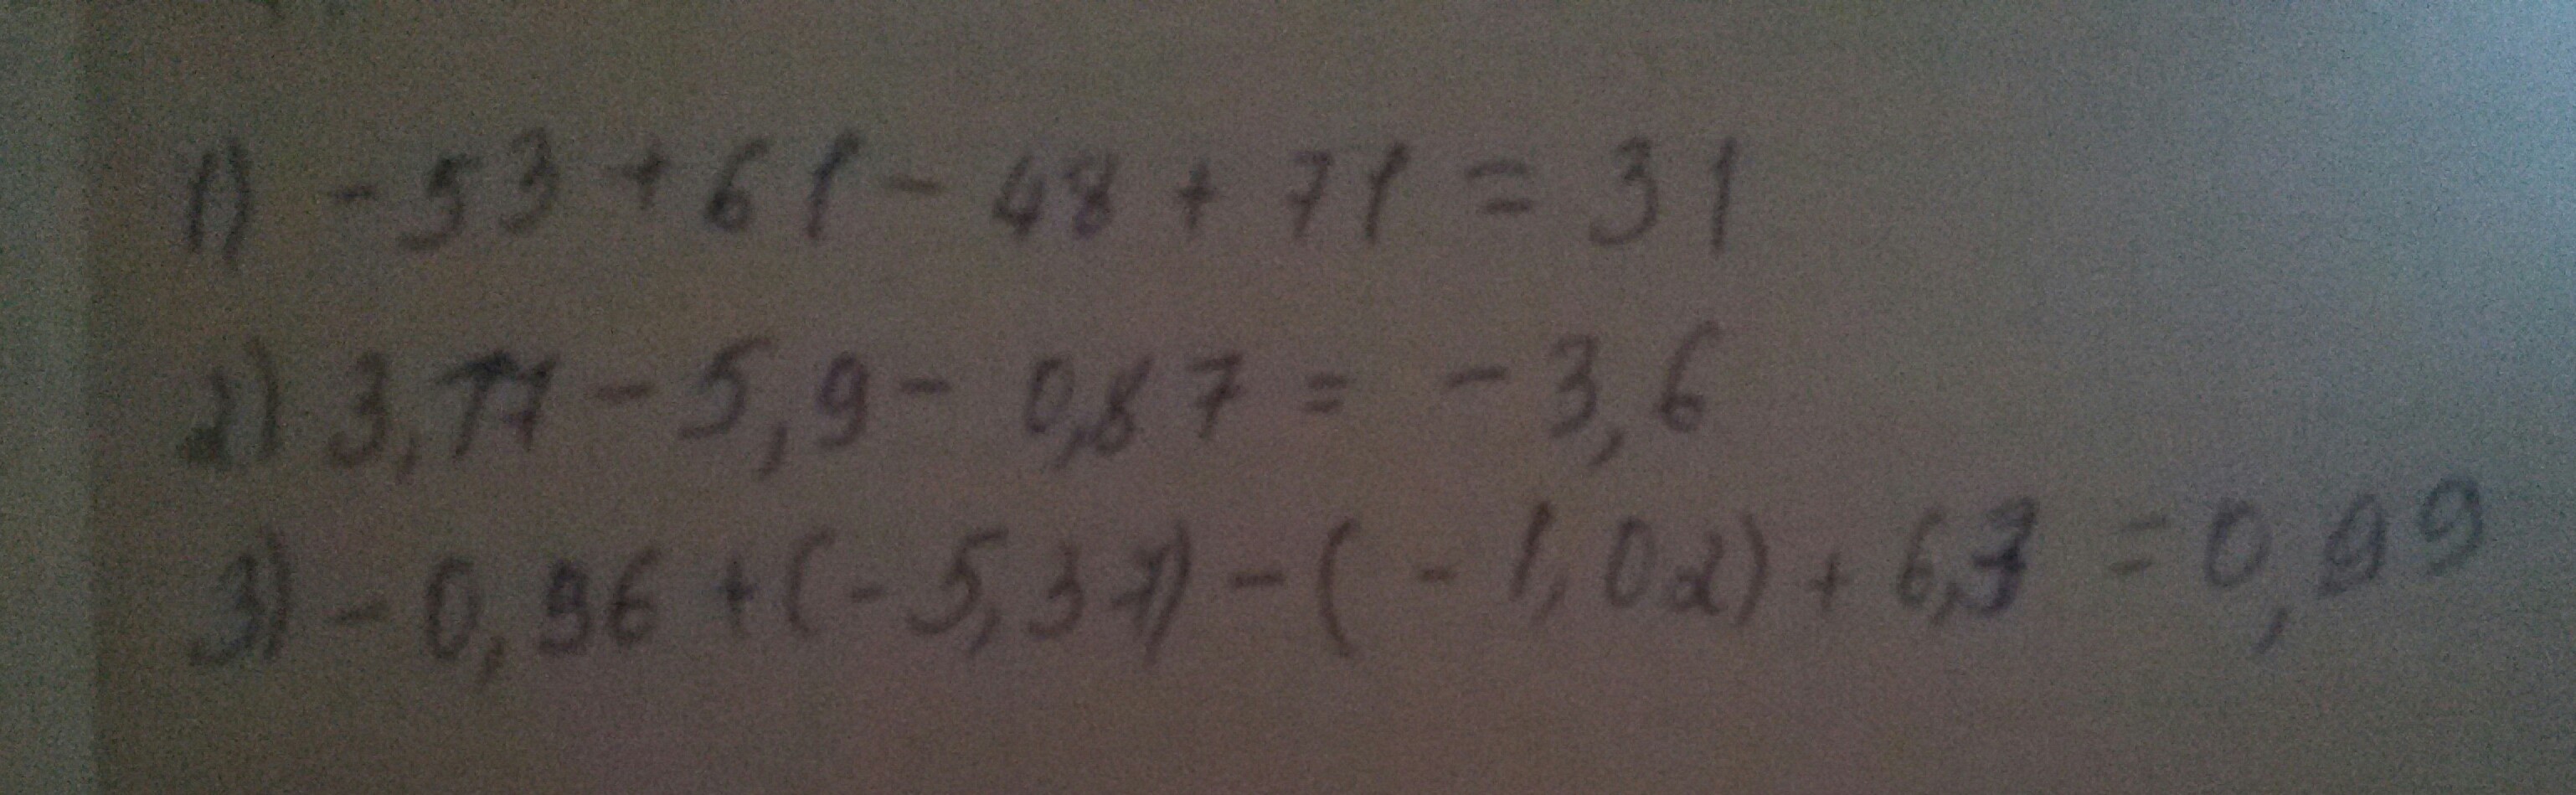 1) - 53 + 61 - 48 + 71 = 31
2) 3,77 - 5,9 - 0,87 = - 3,6
3) - 0,96 + (- 5,37) - ( - 1,02) + 6,3 = 0,99